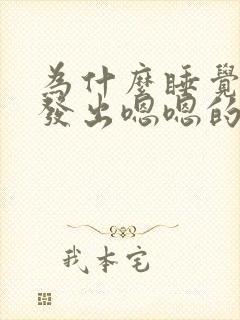 為什麼睡覺
發出嗯嗯的
我本宅